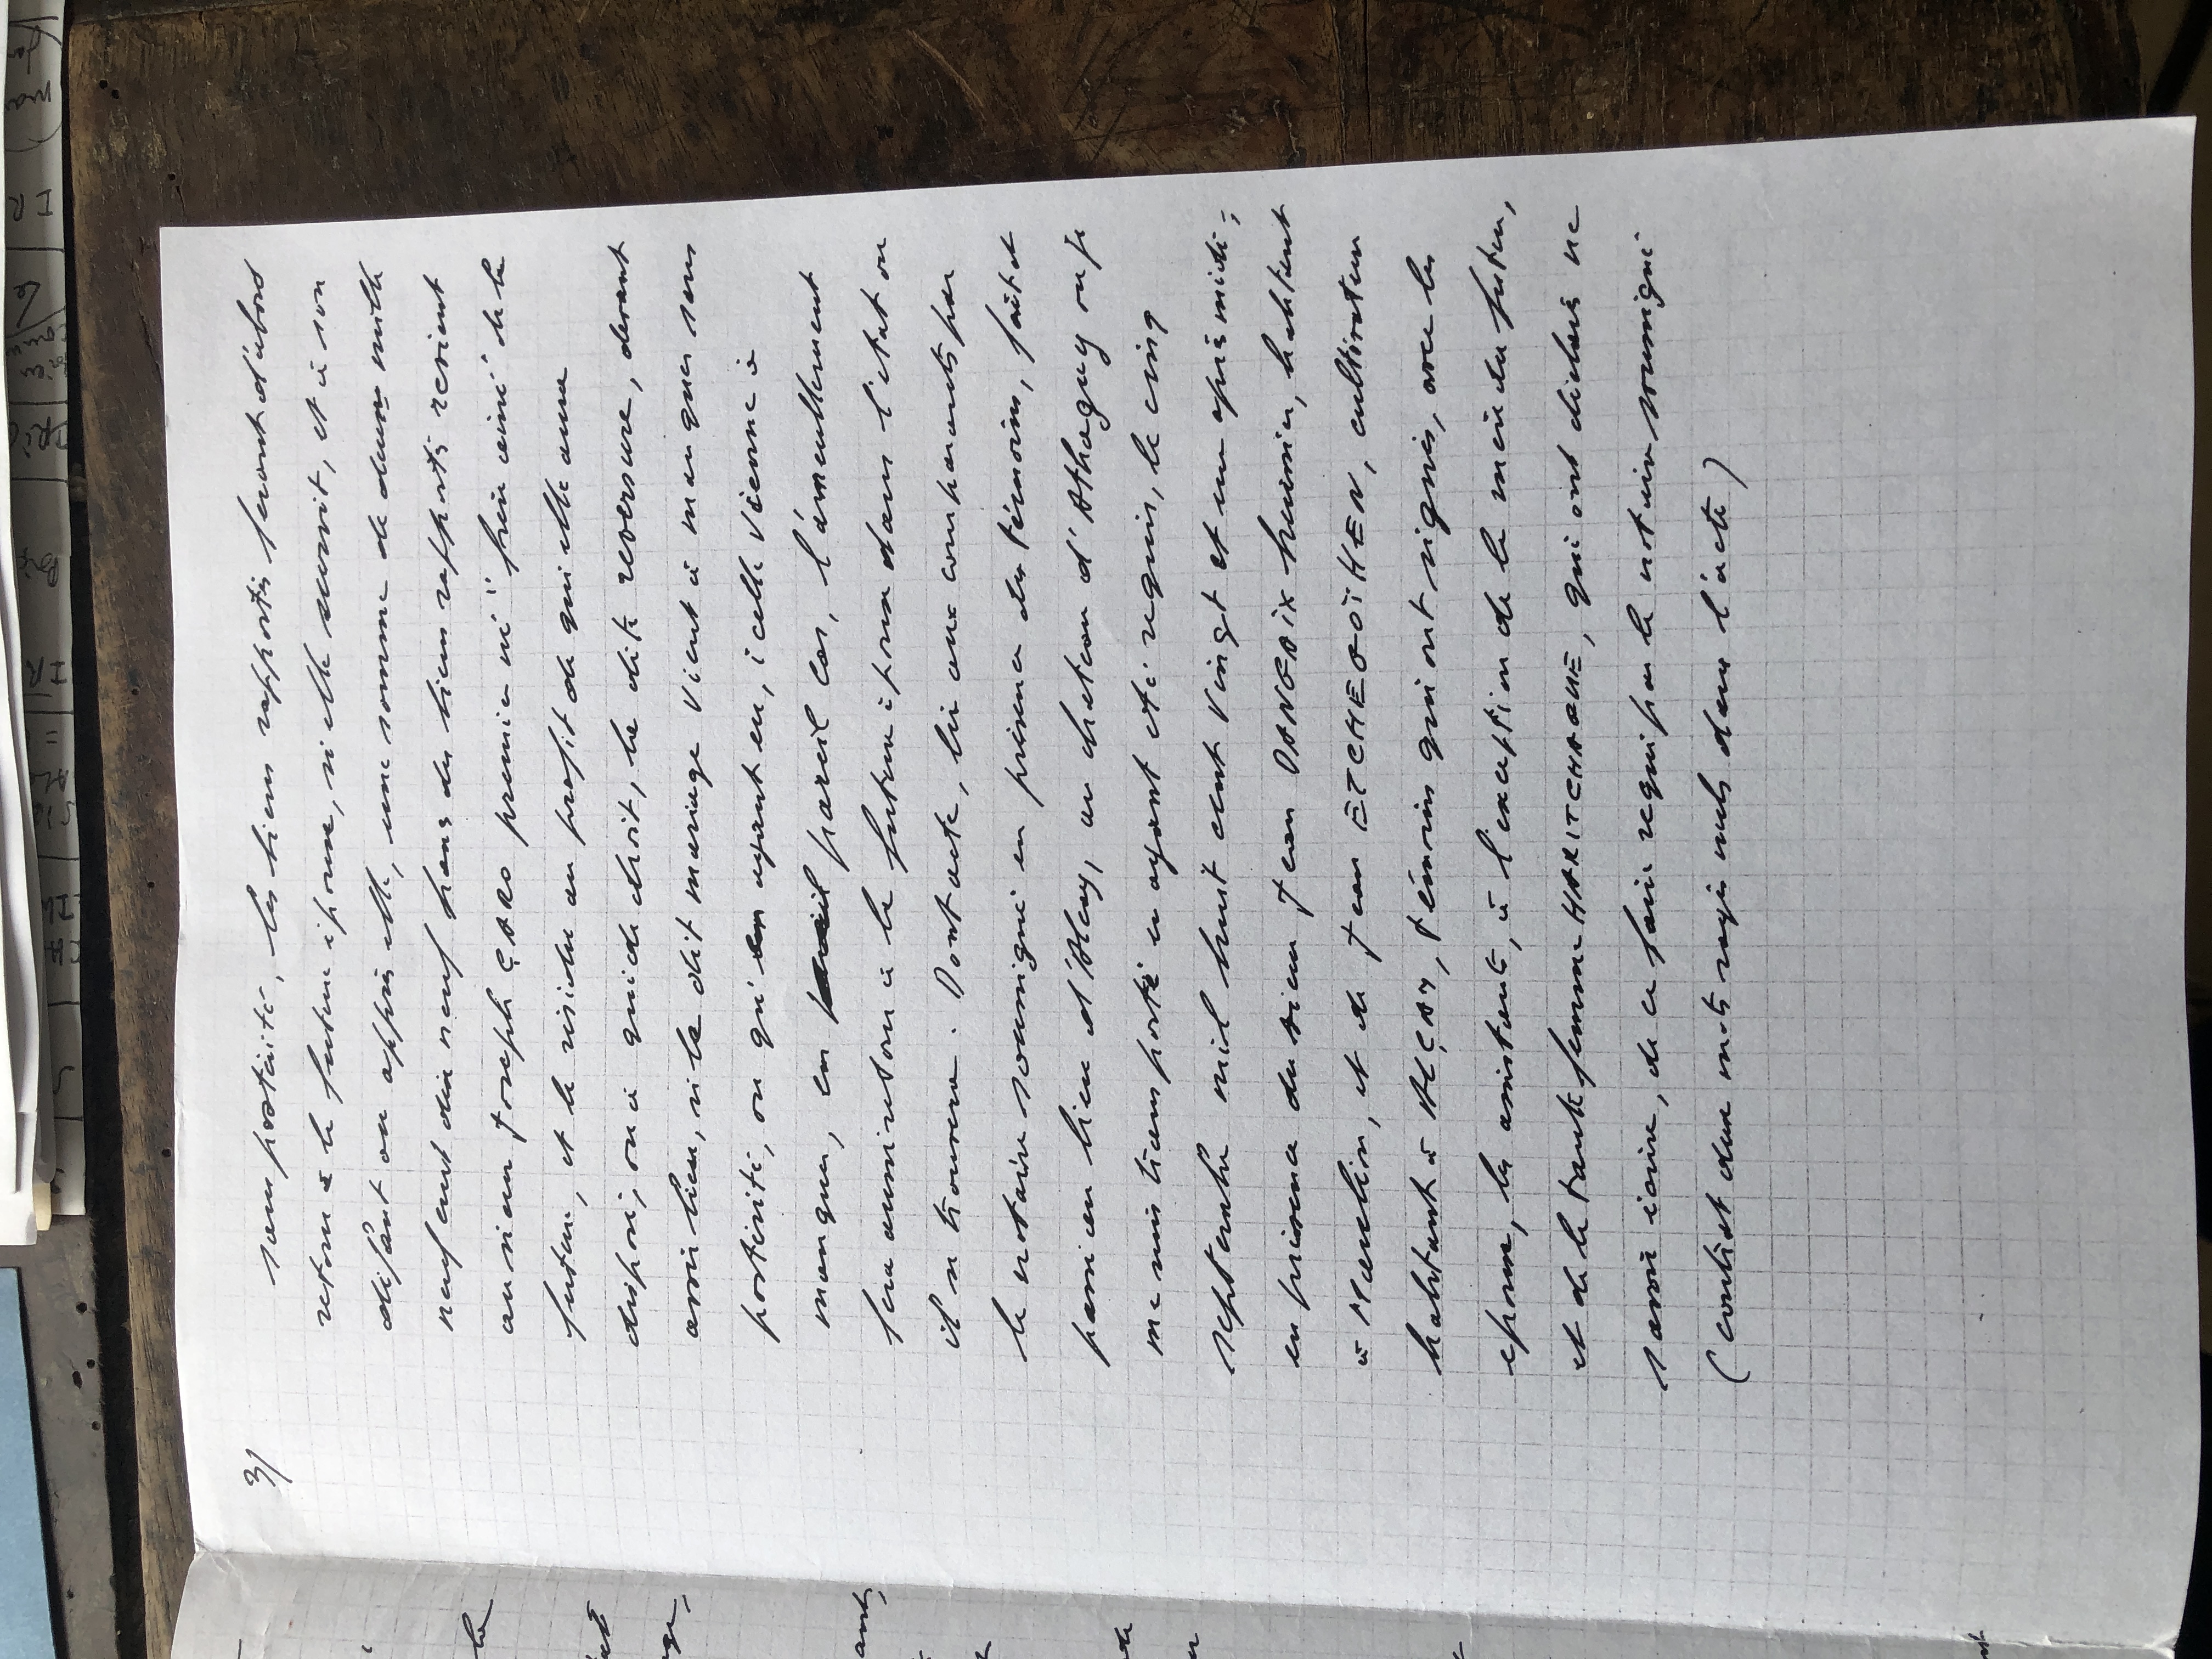 3/
sans postérité, les biens apportés feront d'abord
retour à la future épouse, si elle survit, et à son
défaut ou après elle, une somme de deux mille
neuf cent dix neuf francs des biens apportés revient
au sieur Joseph ÇARO premier né frère ainé de la
future, et le résidu au profit de qui elle aura
disposé, ou à qui de droit, la dite reversure, devant
avoir lieu, si le dit mariage vient à manquer sans
postérité, ou qu'en ayant eu, icelle vienne à
manquer, en pareil cas, l'ameublement
fera aussi retour à la future épouse dans l'état où
il se trouvera. Dont acte, lu aux comparants par
le notaire soussigné en présence des témoins, fait et
passé au lieu d'Alçay, au château d'Athaguy où je
me suis transporté en ayant été requis, le cinq
septembre mil huit cent vingt et un après midi,
en présence du sieur Jean DANGAIX huissier, habitant
à Mauléon, et de Jean ETCHEGOÏHEN, cultivateur
habitant à ALÇAY, témoins qui ont signés, avec les
époux, les assistants, à l'exception de la mère du futur,
et de la tante femme HARITCHABALE, qui ont déclaré ne
savoir écrire, de ce faire requis par le notaire soussigné
(contrat deux mots rayés nuls dans l'acte)